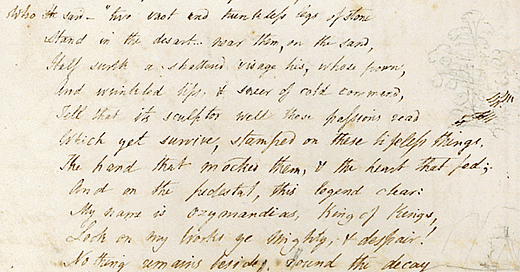 Who said—"two vast and trunkless legs of stone
Stand in the desart... near them, on the sand,
Half sunk a shattered visage lies, whose frown,
And wrinkled lips, & sneer of cold command,
Tell that its sculptor well those passions read
Which yet survive, stamped on these lifeless things,
The hand that mocked them, & the heart that fed;
And on the pedestal, this legend clear:
My name is Ozymandias, King of Kings,
Look on my works ye Mighty, & despair!
No thing remains beside. Round the decay